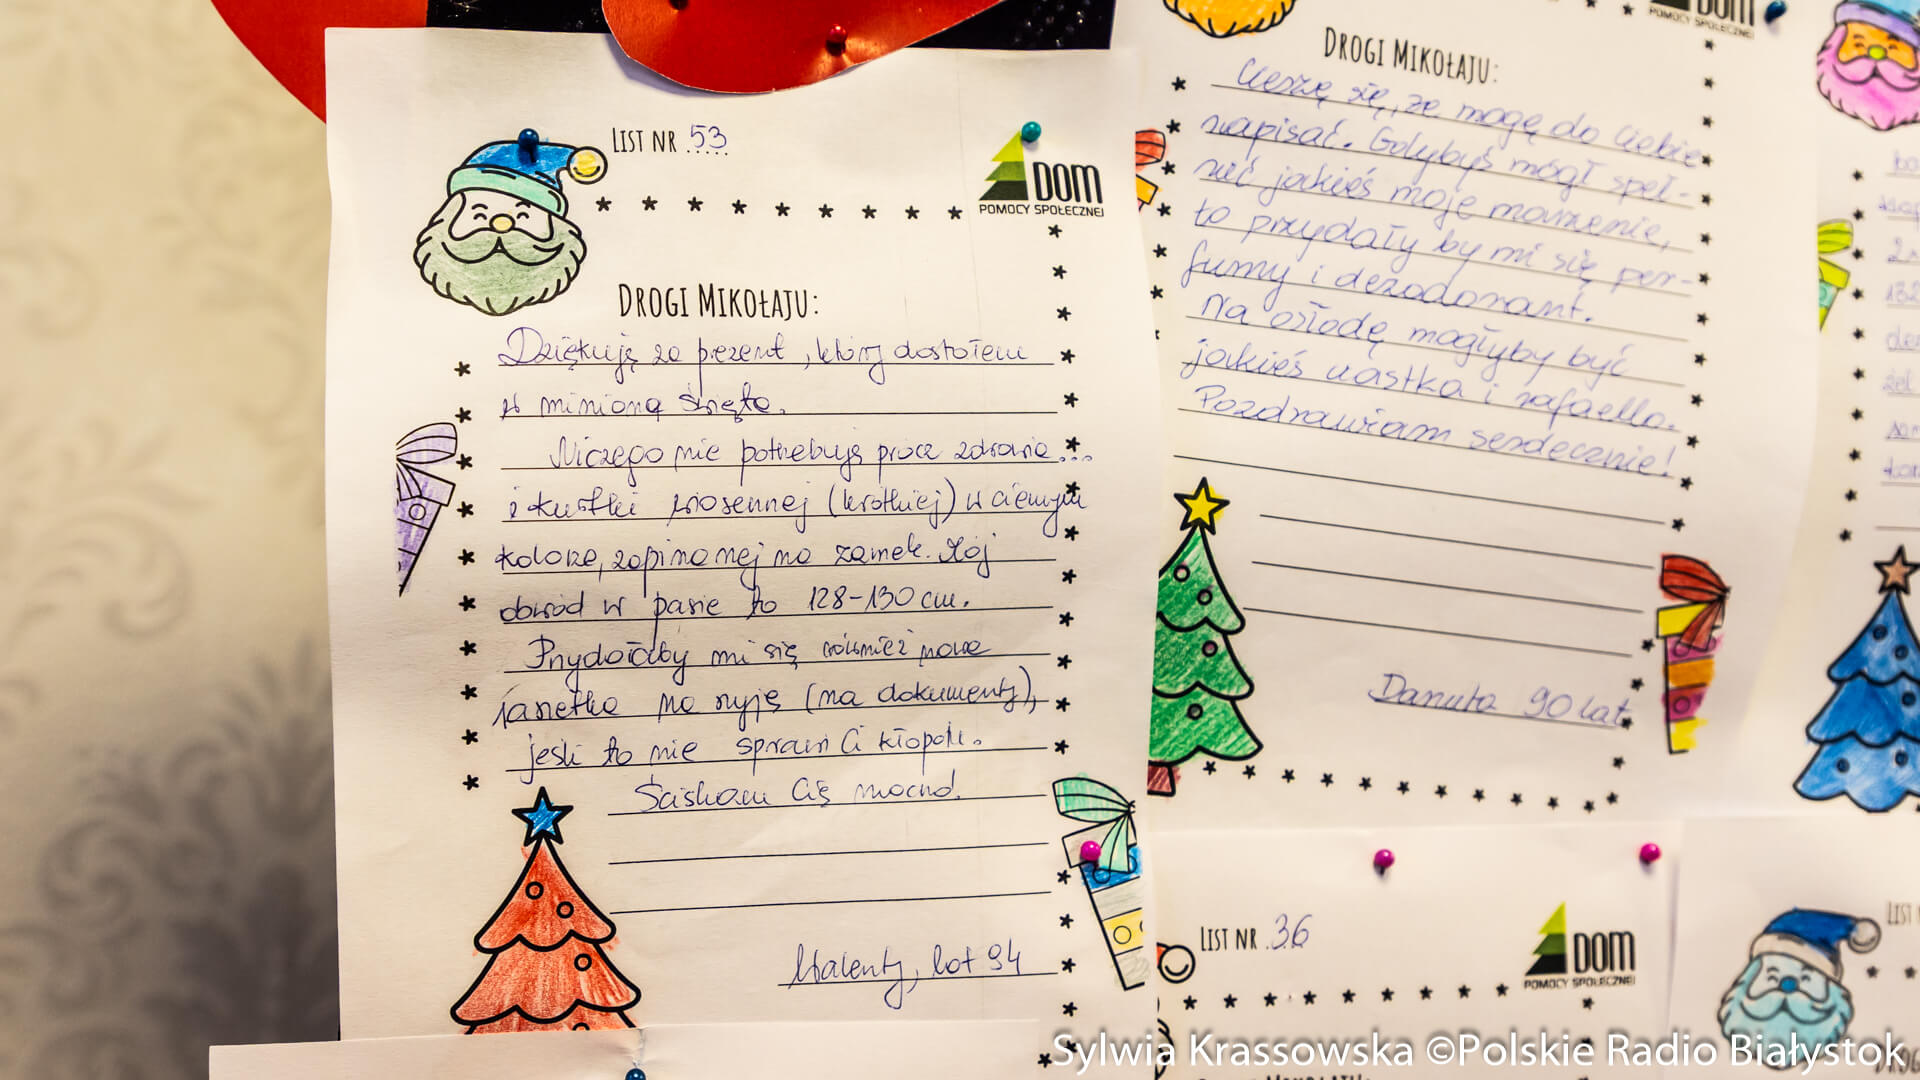 LIST NR 53
DOM
POMOCY SPOŁECZNEJ
DROGI MIKOŁAJU:
Dziękuję za prezent, który dostałem
w minione święta.
Niczego nie potrzebuję prócz zdrowia...
i kurtki wiosennej (krótkiej) w ciemnym
kolorze, zapinanej na zamek. Mój
obwód w pasie to 128-130 cm.
Przydałaby mi się również nowa
saszetka na szyję (na dokumenty),
jeśli to nie sprawi Ci kłopotu.
Ściskam Cię mocno.
Walenty, lat 94
DOM
POMOCY SPOŁECZNEJ
DROGI MIKOŁAJU:
Cieszę się, że mogę do Ciebie
napisać. Gdybyś mógł speł-
nić jakieś moje marzenie,
to przydały by mi się per-
fumy i dezodorant.
Na osłodę mogłyby być
jakieś ciastka i rafaello.
Pozdrawiam serdecznie!
Danuta 90 lat
LIST NR 36
DOM
POMOCY SPOŁECZNEJ
LIST
Sylwia Krassowska ©Polskie Radio Białystok